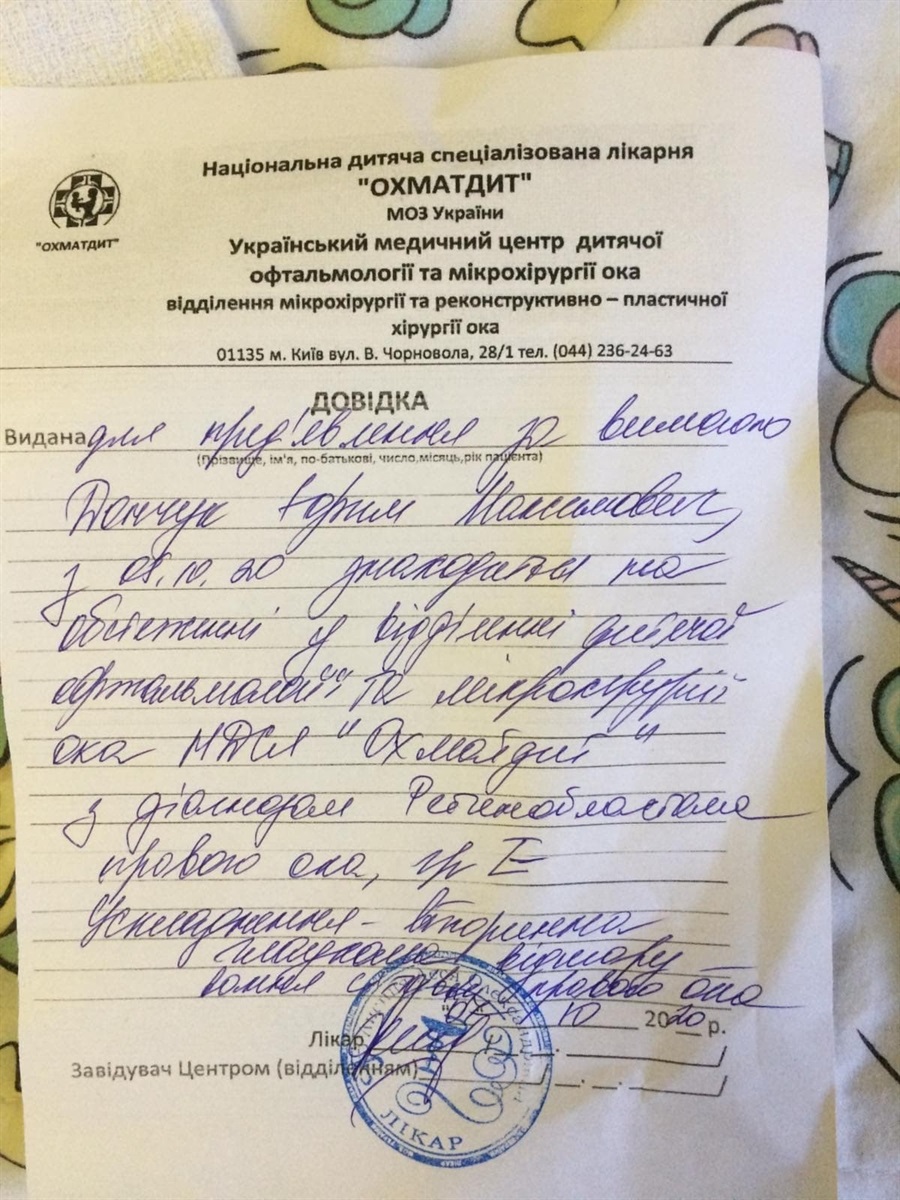 Національна дитяча спеціалізована лікарня
"ОХМАТДИТ"
МОЗ України
"ОХМАТДИТ"
Український медичний центр дитячої
офтальмології та мікрохірургії ока
відділення мікрохірургії та реконструктивно – пластичної
хірургії ока
01135 м. Київ вул. В. Чорновола, 28/1 тел. (044) 236-24-63
ДОВІДКА
Видана для пред'явлення за вимогою
(Прізвище, ім'я, по-батькові, число,місяць,рік пацієнта)
Максимович,
з 08.10.20 знаходиться на
обстеженні у відділенні дитячої
офтальмології та мікрохірургії
ока НДСЛ "Охматдит"
з діагнозом Ретинобластома
правого ока, гр Е
Ускладнення - вторинна
глаукома, відшару
вання правого ока
10 2020 р.
Лікар
Завідувач Центром (відділенням)
ЛІКАР